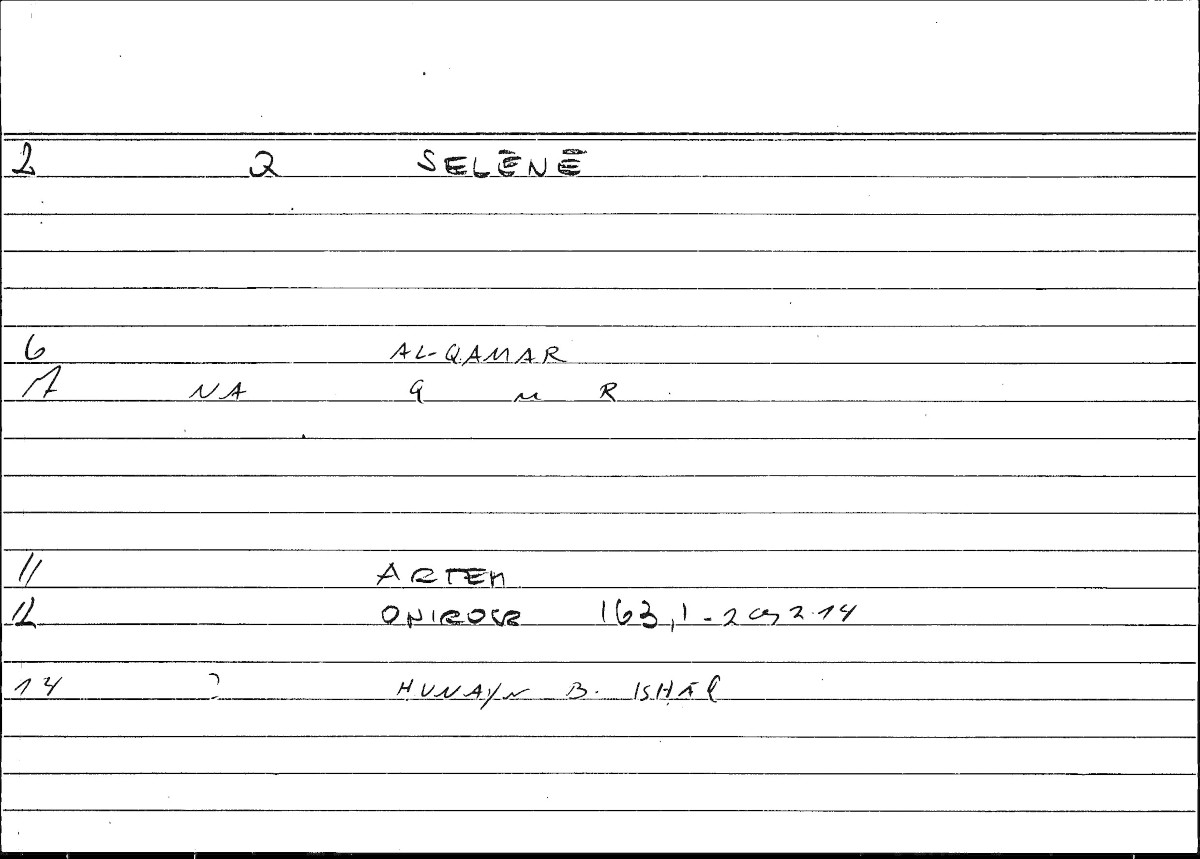 2 Q SELĒNĒ
6 AL-QAMAR
7 NA q m R
11 ARTEM
12 ONIROCR 163,1-2 2.14
14 ? ḤUNAYN B. ISḤĀQ